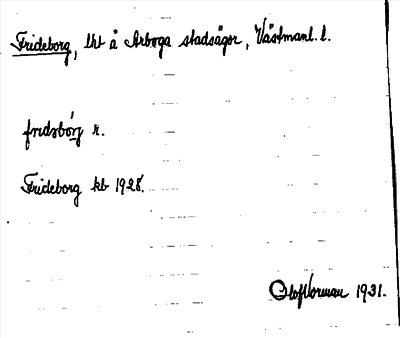 Frideborg, lht å Arboga stadsägor, Västmanl. l.
fridsbórj r.
Frideborg kb 1928.
Olof Norman 1931.